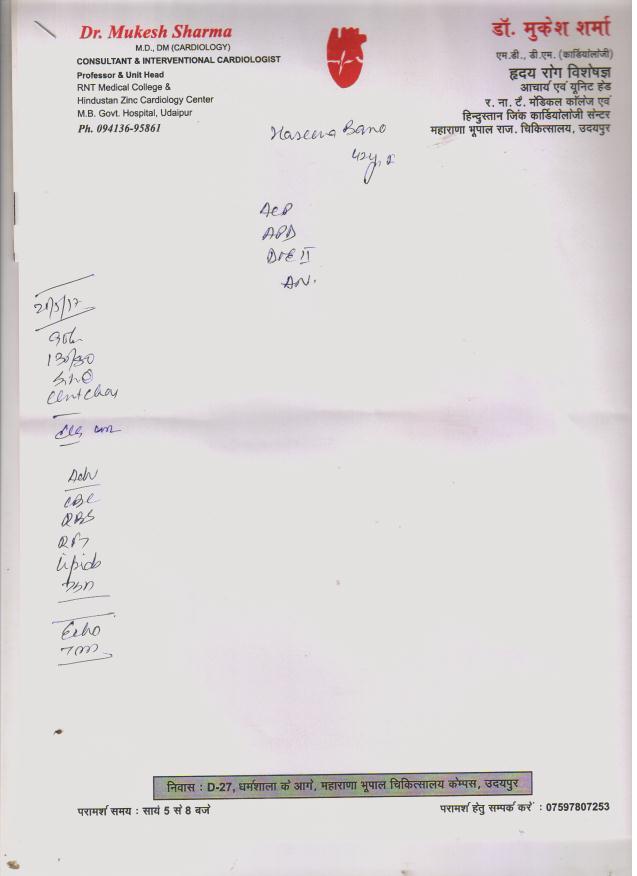 Dr. Mukesh Sharma
M.D., DM (CARDIOLOGY)
CONSULTANT & INTERVENTIONAL CARDIOLOGIST
Professor & Unit Head
RNT Medical College &
Hindustan Zinc Cardiology Center
M.B. Govt. Hospital, Udaipur
Ph. 094136-95861
डॉ. मुकेश शर्मा
एम.डी., डी.एम. (कार्डियोलॉजी)
हृदय रोग विशेषज्ञ
आचार्य एवं यूनिट हेड
र. ना. टै. मेडिकल कॉलेज एवं
हिन्दुस्तान जिंक कार्डियोलॉजी सेन्टर
महाराणा भूपाल राज. चिकित्सालय, उदयपुर
Haseena Bano
42y
ACP
APD
DOE II
AN.
130/80
Adv
CBC
RBS
RFT
Lipids
Echo
TMT
निवास : D-27, धर्मशाला के आगे, महाराणा भूपाल चिकित्सालय केम्पस, उदयपुर
परामर्श समय : सायं 5 से 8 बजे
परामर्श हेतु सम्पर्क करें : 07597807253